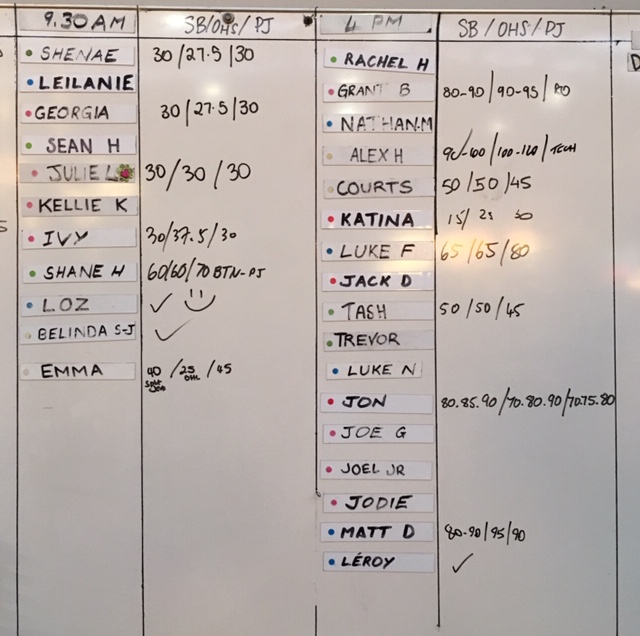 9.30 AM SB/OHS/PJ
SHENAE 30/27.5/30
LEILANIE
GEORGIA 30/27.5/30
SEAN H
JULIE L 30/30/30
KELLIE K
IVY 30/37.5/30
SHANE H 60/60/70 BTN-PJ
LOZ ✓
BELINDA S-J ✓
EMMA 40/25/45
OHS
4 PM SB/OHS/PJ
RACHEL H
GRANT B 80-90/90-95/
NATHAN.M
ALEX H 90-100/100-110/TECH
COURTS 50/50/45
KATINA 15/ 25 30
LUKE F 65/65/80
JACK D
TASH 50/50/45
TREVOR
LUKE N
JON 80.85.90/70.80.90/70.75.80
JOE G
JOEL JR
JODIE
MATT D 80-90/95/90
LÉROY ✓
D